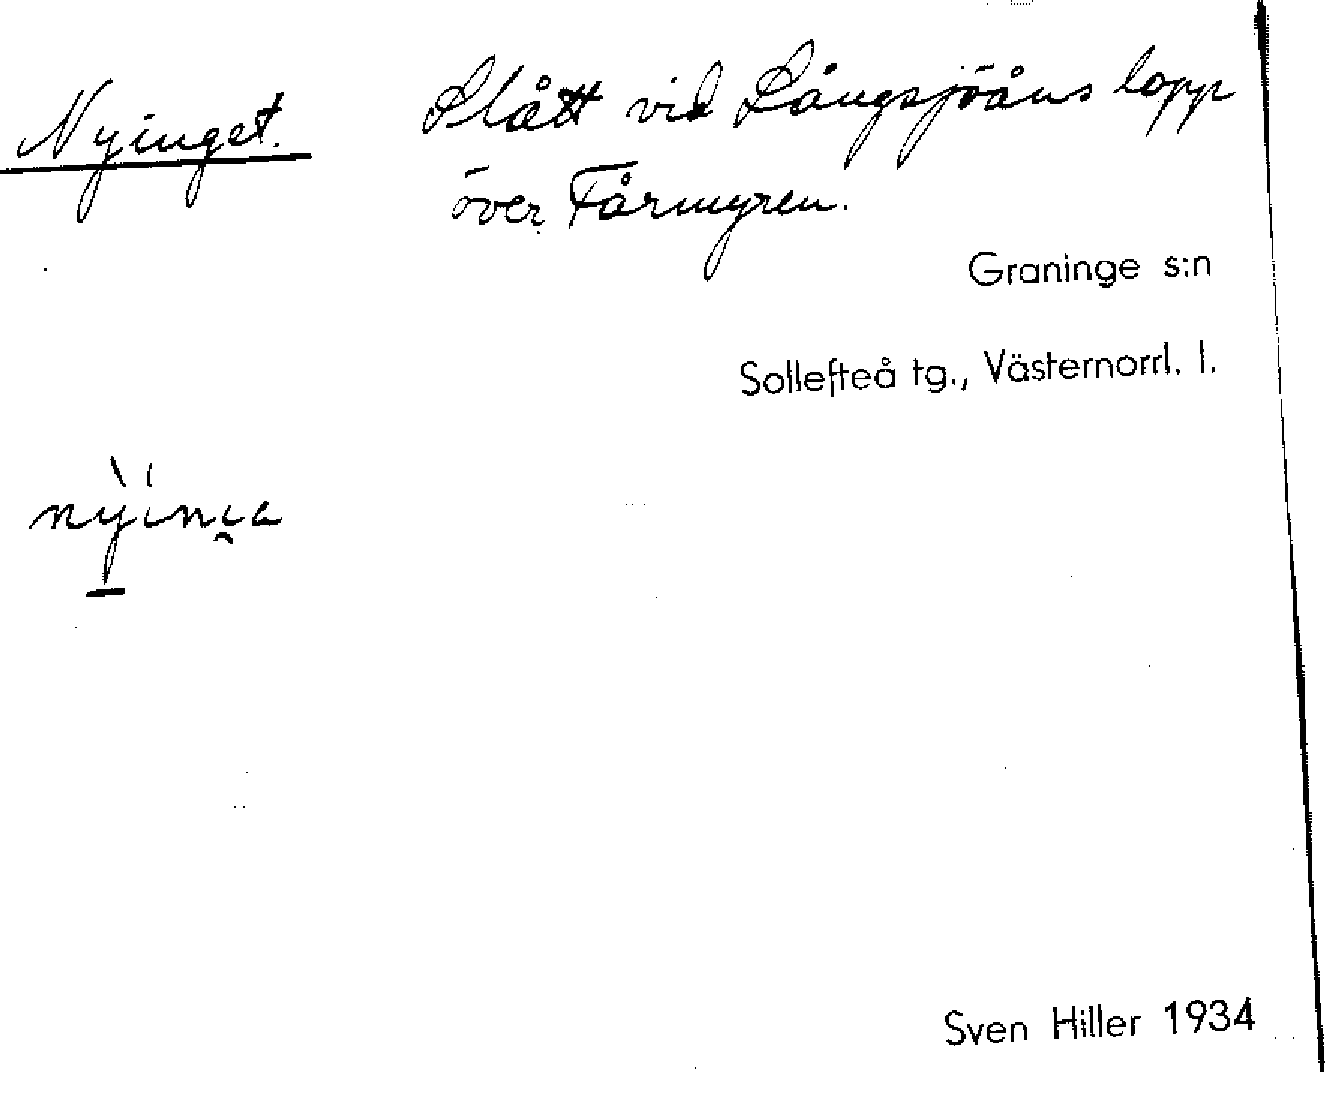 Nyinget. Slått vid Långsjöåns lopp
över Fårmyren.
Graninge s:n
Sollefteå tg., Västernorrl. l.
Sven Hiller 1934